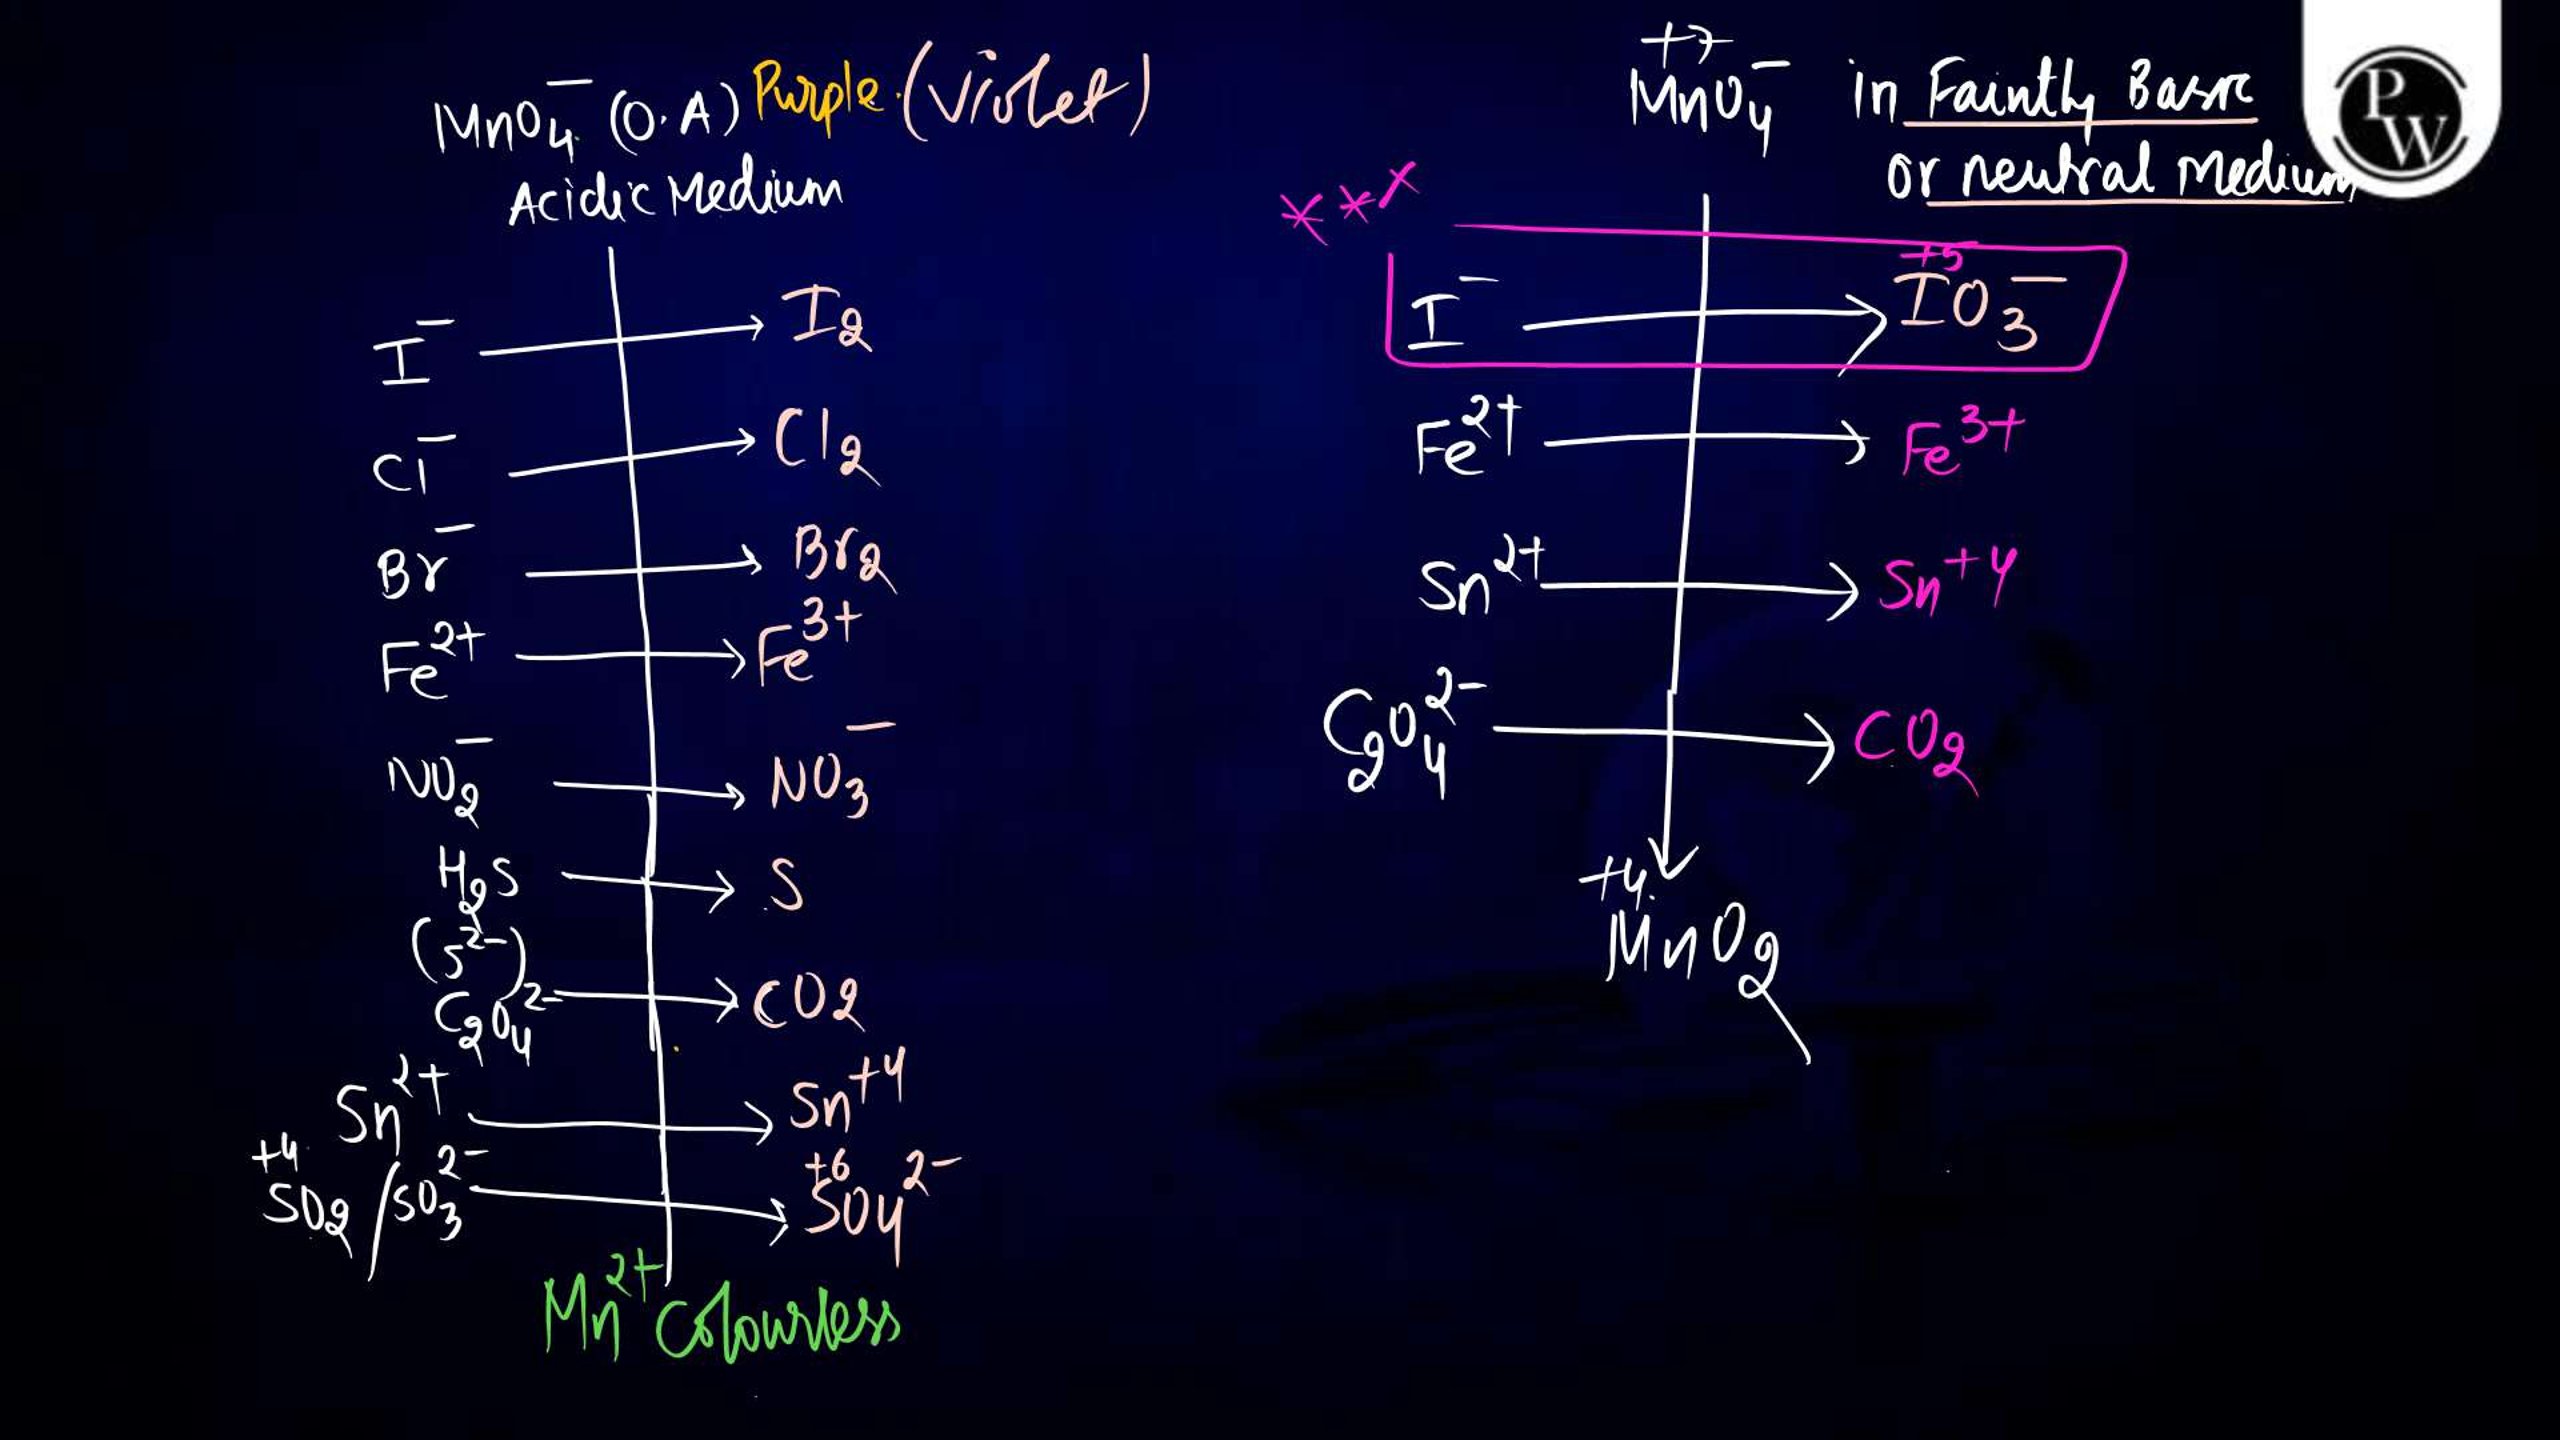 MnO4⁻ (O.A) Purple. (Violet)
Acidic Medium
I⁻ → I2
Cl⁻ → Cl2
Br⁻ → Br2
Fe²⁺ → Fe³⁺
NO2⁻ → NO3⁻
H2S → S
(S²⁻)
C2O4²⁻ → CO2
Sn²⁺ → Sn⁺⁴
+4 +6
SO2 / SO3²⁻ → SO4²⁻
Mn²⁺ Colourless
+7
MnO4⁻ in Faintly Basic
or neutral Medium
***
+5
I⁻ → IO3⁻
Fe²⁺ → Fe³⁺
Sn²⁺ → Sn⁺⁴
C2O4²⁻ → CO2
+4
MnO2
PW